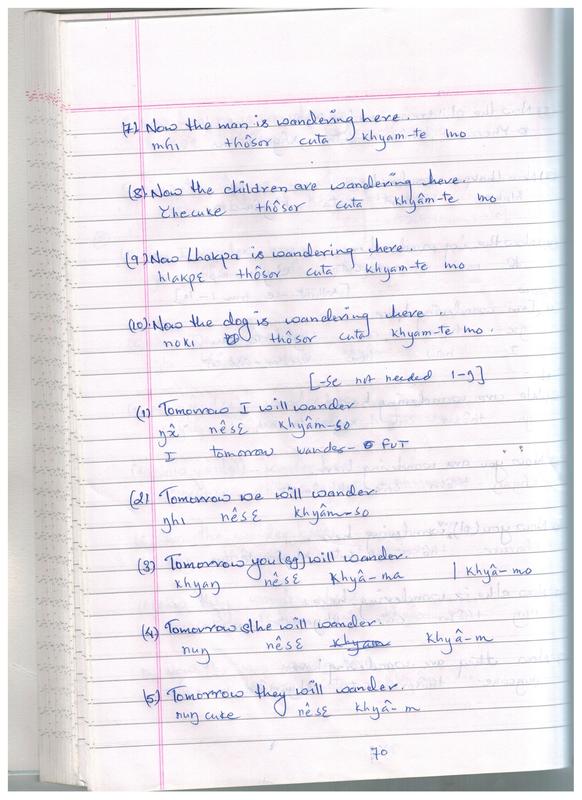 (7) Now the man is wandering here.
mhi thôsor cuta khyam-te mo
(8) Now the children are wandering here.
thôsor cuta khyâm-te mo
(9) Now Lhakpa is wandering here.
hlakpɛ thôsor cuta khyam-te mo
(10). Now the dog is wandering here.
noki thôsor cuta khyam-te mo.
[-se not needed 1-9]
(1) Tomorrow I will wander
ŋâ nêsɛ khyâm-so
I tomorrow wander- FUT
(2) Tomorrow we will wander.
ŋhi nêsɛ khyâm-so
(3) Tomorrow you(sg) will wander.
khyaŋ nêsɛ khyâ-ma | khyâ-mo
(4) Tomorrow s/he will wander.
nuŋ nêsɛ khyam khyâ-m
(5) Tomorrow they will wander.
nuŋ cuke nêsɛ khyâ-m
70